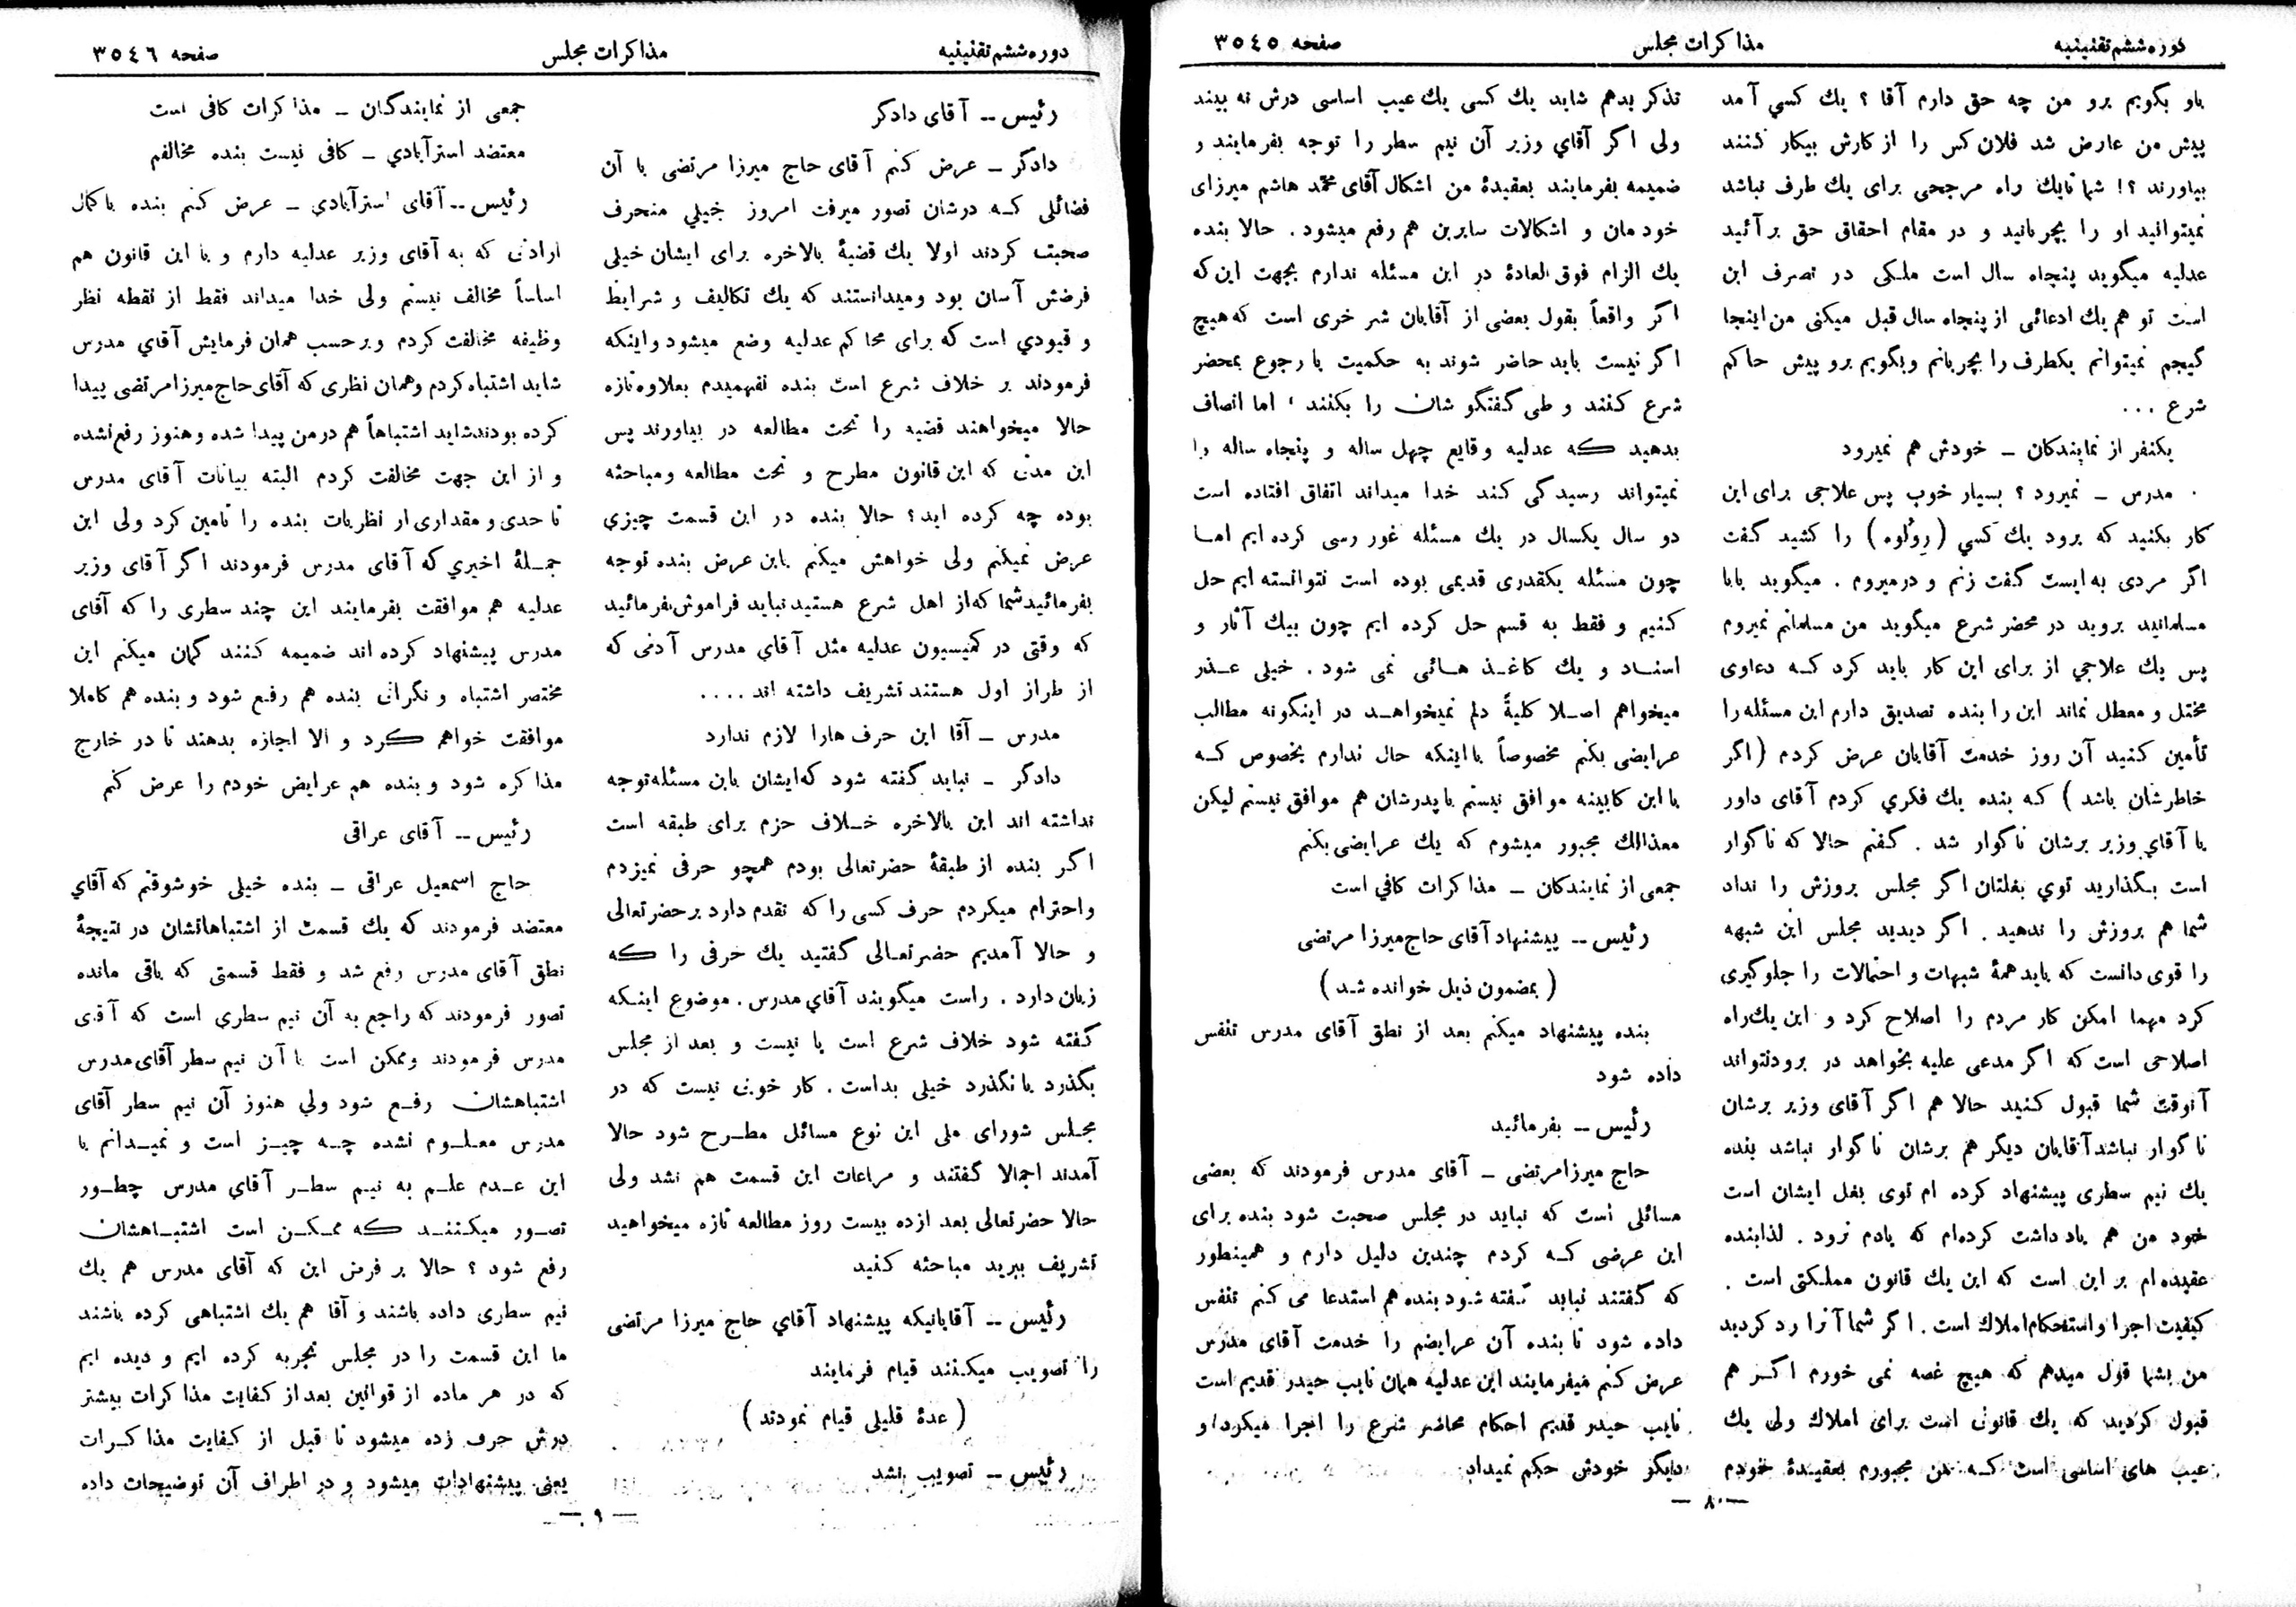 دوره ششم تقنینیه
مذاکرات مجلس
صفحه ۳۵٤۵
باو بگویم برو من چه حق دارم آقا ؟ یك کسي آمد
پیش من عارض شد فلان کس را از کارش بیکار کنند
بیاورند ؟! شما تایك راه مرجحی برای یك طرف نباشد
نمیتوانید او را بچربانید و در مقام احقاق حق برآئید
عدلیه میگوید پنچاه سال است ملکی در تصرف این
است تو هم یك ادعائی از پنچاه سال قبل میکنی من اینجا
گیجم نمیتوانم یکطرف را بچربانم وبگویم برو پیش حاکم
شرع ...
یکنفر از نمایندکان ــ خودش هم نمیرود
مدرس ــ نمیرود ؟ بسیار خوب پس علاجی برای این
کار بکنید که برود یك کسي (رولوه) را کشید گفت
اگر مردی به ایست گفت زنم و درمیروم . میگوید بابا
مسلمانید بروید در محضر شرع میگوید من مسلمانم نمیروم
پس یك علاجي از برای این کار باید کرد کـه دعاوی
مختل و معطل نماند این را بنده تصدیق دارم این مسئله را
تأمین کنید آن روز خدمت آقایان عرض کردم (اگر
خاطرشان باشد) کـه بنده یك فکري کردم آقای داور
یا آقاي وزیر برشان ناگوار شد . گفتم حالا که ناگوار
است بگذارید توي بغلتان اگر مجلس بروزش را نداد
شما هم بروزش را ندهید . اگر دیدید مجلس این شبهه
را قوی دانست که باید همهٔ شبهات و احتمالات را جلوگیری
کرد مهما امکن کار مردم را اصلاح کرد و این یك راه
اصلاحی است که اگر مدعی علیه بخواهد در برود نتواند
آنوقت شما قبول کنید حالا هم اگر آقای وزیر برشان
ناگوار نباشد آقایان دیگر هم برشان ناگوار نباشد بنده
یك نیم سطری پیشنهاد کرده ام توی بغل ایشان است
خود من هم یادداشت کرده‌ام که یادم نرود . لذا بنده
عقیده ام بر این است که این یك قانون مملکتی است .
کیفیت اجرا و استحکام املاك است . اگر شما آنرا رد کردید
من بشما قول میدهم که هیچ غصه نمی خورم اگـر هم
قبول کردید که یك قانونی است برای املاك ولی یك
عیب های اساسی است کـه من مجبورم بعقیدهٔ خودم
تذکر بدهم شاید یك کسی یك عیب اساسی درش نه بیند
ولی اگر آقاي وزیر آن نیم سطر را توجه بفرمایند و
ضمیمه بفرمایند بعقیدهٔ من اشکال آقای محمد هاشم میرزای
خودمان و اشکالات سایرین هم رفع میشود . حالا بنده
یك الزام فوق العادهٔ در این مسئله ندارم بجهت این که
اگر واقعاً بقول بعضی از آقایان شر خری است که هیچ
اگر نیست باید حاضر شوند به حکمیت یا رجوع بمحضر
شرع کنند و طی گفتگو شان را بکنند ، اما انصاف
بدهید که عدلیه وقایع چهل ساله و پنجاه ساله را
نمیتواند رسیدگی کند خدا میداند اتفاق افتاده است
دو سال یکسال در یك مسئله غور رسی کرده ایم امـا
چون مسئله یکقدری قدیمی بوده است نتوانسته ایم حل
کنیم و فقط به قسم حل کرده ایم چون بیك آثار و
اسناد و یك کاغذ هـائی نمی شود . خیلی عـذر
میخواهم اصـلا کلیهً دلم نمیخواهـد در اینگونه مطالب
عرایضی بکنم مخصوصاً با اینکه حال ندارم بخصوص کـه
با این کابینه موافق نیستم با پدرشان هم موافق نیستم لیکن
معذالك مجبور میشوم که یك عرایضی بکنم
جمعی از نمایندکان ــ مذاکرات کافي است
رئیس ــ پیشنهاد آقای حاج میرزا مرتضی
(بمضمون ذیل خوانده شد)
بنده پیشنهاد میکنم بعد از نطق آقای مدرس تنفس
داده شود
رئیس ــ بفرمائید
حاج میرزا مرتضی ــ آقای مدرس فرمودند که بعضی
مسائلی است که نباید در مجلس صحبت شود بنده برای
این عرضی کـه کردم چندین دلیل دارم و همینطور
که گفتند نباید گفته شود بنده هم استدعا می کنم تنفس
داده شود تا بنده آن عرایضم را خدمت آقای مدرس
عرض کنم میفرمایند این عدلیه همان نایب حیدر قدیم است
نایب حیدر قدیم احکام محاضر شرع را اجرا میکرد و
دیگر خودش حکم نمیداد
ــ ۸ ــ
دوره ششم تقنینیه
مذاکرات مجلس
صفحه ۳۵٤٦
رئیس ــ آقای دادگر
دادگر ــ عرض کنم آقای حاج میرزا مرتضی با آن
فضائلی کـه درشان تصور میرفت امروز خیلي منحرف
صحبت کردند اولا یك قضیهٔ بالاخره برای ایشان خیلی
فرضش آسان بود ومیدانستند که یك تکالیف و شرایط
و قیودي است که برای محاکم عدلیه وضع میشود واینکه
فرمودند بر خلاف شرع است بنده نفهمیدم بعلاوه تازه
حالا میخواهند قضیه را تحت مطالعه در بیاورند پس
این مدتی که این قانون مطرح و تحت مطالعه ومباحثه
بوده چه کرده اید ؟ حالا بنده در این قسمت چیزي
عرض نمیکنم ولی خواهش میکنم باین عرض بنده توجه
بفرمائید شما که از اهل شرع هستید نباید فراموش بفرمائید
که وقتی در کمیسیون عدلیه مثل آقاي مدرس آدمی که
از طراز اول هستند تشریف داشته اند ....
مدرس ــ آقا این حرف هارا لازم ندارد
دادگر ــ نباید گفته شود که ایشان باین مسئله توجه
نداشته اند این بالاخره خـلاف حزم برای طبقه است
اگر بنده از طبقهٔ حضرتعالی بودم همچو حرفی نمیزدم
واحترام میکردم حرف کسی را که تقدم دارد برحضرتعالی
و حالا آمدیم حضرتعالی گفتید یك حرفی را که
زیان دارد . راست میگویند آقاي مدرس . موضوع اینکه
گفته شود خلاف شرع است یا نیست و بعد از مجلس
بگذرد یا نگذرد خیلی بد است . کار خوبی نیست که در
مجلس شورای ملی این نوع مسائل مطرح شود حالا
آمدند اجمالا گفتند و مراعات این قسمت هم نشد ولی
حالا حضرتعالی بعد از ده بیست روز مطالعه تازه میخواهید
تشریف ببرید مباحثه کنید
رئیس ــ آقایانیکه پیشنهاد آقاي حاج میرزا مرتضی
را تصویب میکنند قیام فرمایند
(عدهٔ قلیلی قیام نمودند)
رئیس ــ تصویب نشد
جمعی از نمایندگان ــ مذاکرات کافی است
معتضد استرآبادي ــ کافی نیست بنده مخالفم
رئیس ــ آقای استرآبادي ــ عرض کنم بنده باکمال
ارادتی که به آقای وزیر عدلیه دارم و با این قانون هم
اساساً مخالف نیستم ولی خدا میداند فقط از نقطه نظر
وظیفه مخالفت کردم وبرحسب همان فرمایش آقاي مدرس
شاید اشتباه کردم وهمان نظری که آقای حاج میرزا مرتضی پیدا
کرده بودند شاید اشتباهاً هم درمن پیدا شده و هنوز رفع نشده
و از این جهت مخالفت کردم البته بیانات آقای مدرس
تا حدی و مقداری از نظریات بنده را تامین کرد ولی این
جمـلهٔ اخیري که آقای مدرس فرمودند اگر آقای وزیر
عدلیه هم موافقت بفرمایند این چند سطری را که آقای
مدرس پیشنهاد کرده اند ضمیمه کنند گمان میکنم این
مختصر اشتباه و نگرانی بنده هم رفـع شود و بنده هم کاملا
موافقت خواهم کرد و الا اجازه بدهند تا در خارج
مذاکره شود و بنده هم عرایض خودم را عرض کنم
رئیس ــ آقای عراقی
حاج اسمعیل عراقی ــ بنده خیلی خوشوقتم که آقاي
معتضد فرمودند که یك قسمت از اشتباهاتشان در نتیجهٔ
نطق آقای مدرس رفع شد و فقط قسمتی که باقی مانده
تصور فرمودند که راجع به آن نیم سطري است که آقای
مدرس فرمودند وممکن است با آن نیم سطر آقای مدرس
اشتباهشان رفـع شود ولي هنوز آن نیم سطر آقای
مدرس معـلـوم نشده چـه چیـز است و نمیـدانم با
این عـدم علـم به نیـم سطـر آقاي مدرس چطـور
تصـور میکننـد که ممـکـن است اشتبـاهشان
رفع شود ؟ حالا بر فرض این که آقای مدرس هم یك
نیم سطری داده باشند و آقا هم یك اشتباهی کرده باشند
ما این قسمت را در مجلس تجربه کرده ایم و دیده ایم
که در هر ماده از قوانین بعد از کفایت مذاکرات بیشتر
درش حرف زده میشود تا قبل از کفایت مذاکـرات
یعنی پیشنهادات میشود و در اطراف آن توضیحات داده
ــ ۹ ــ